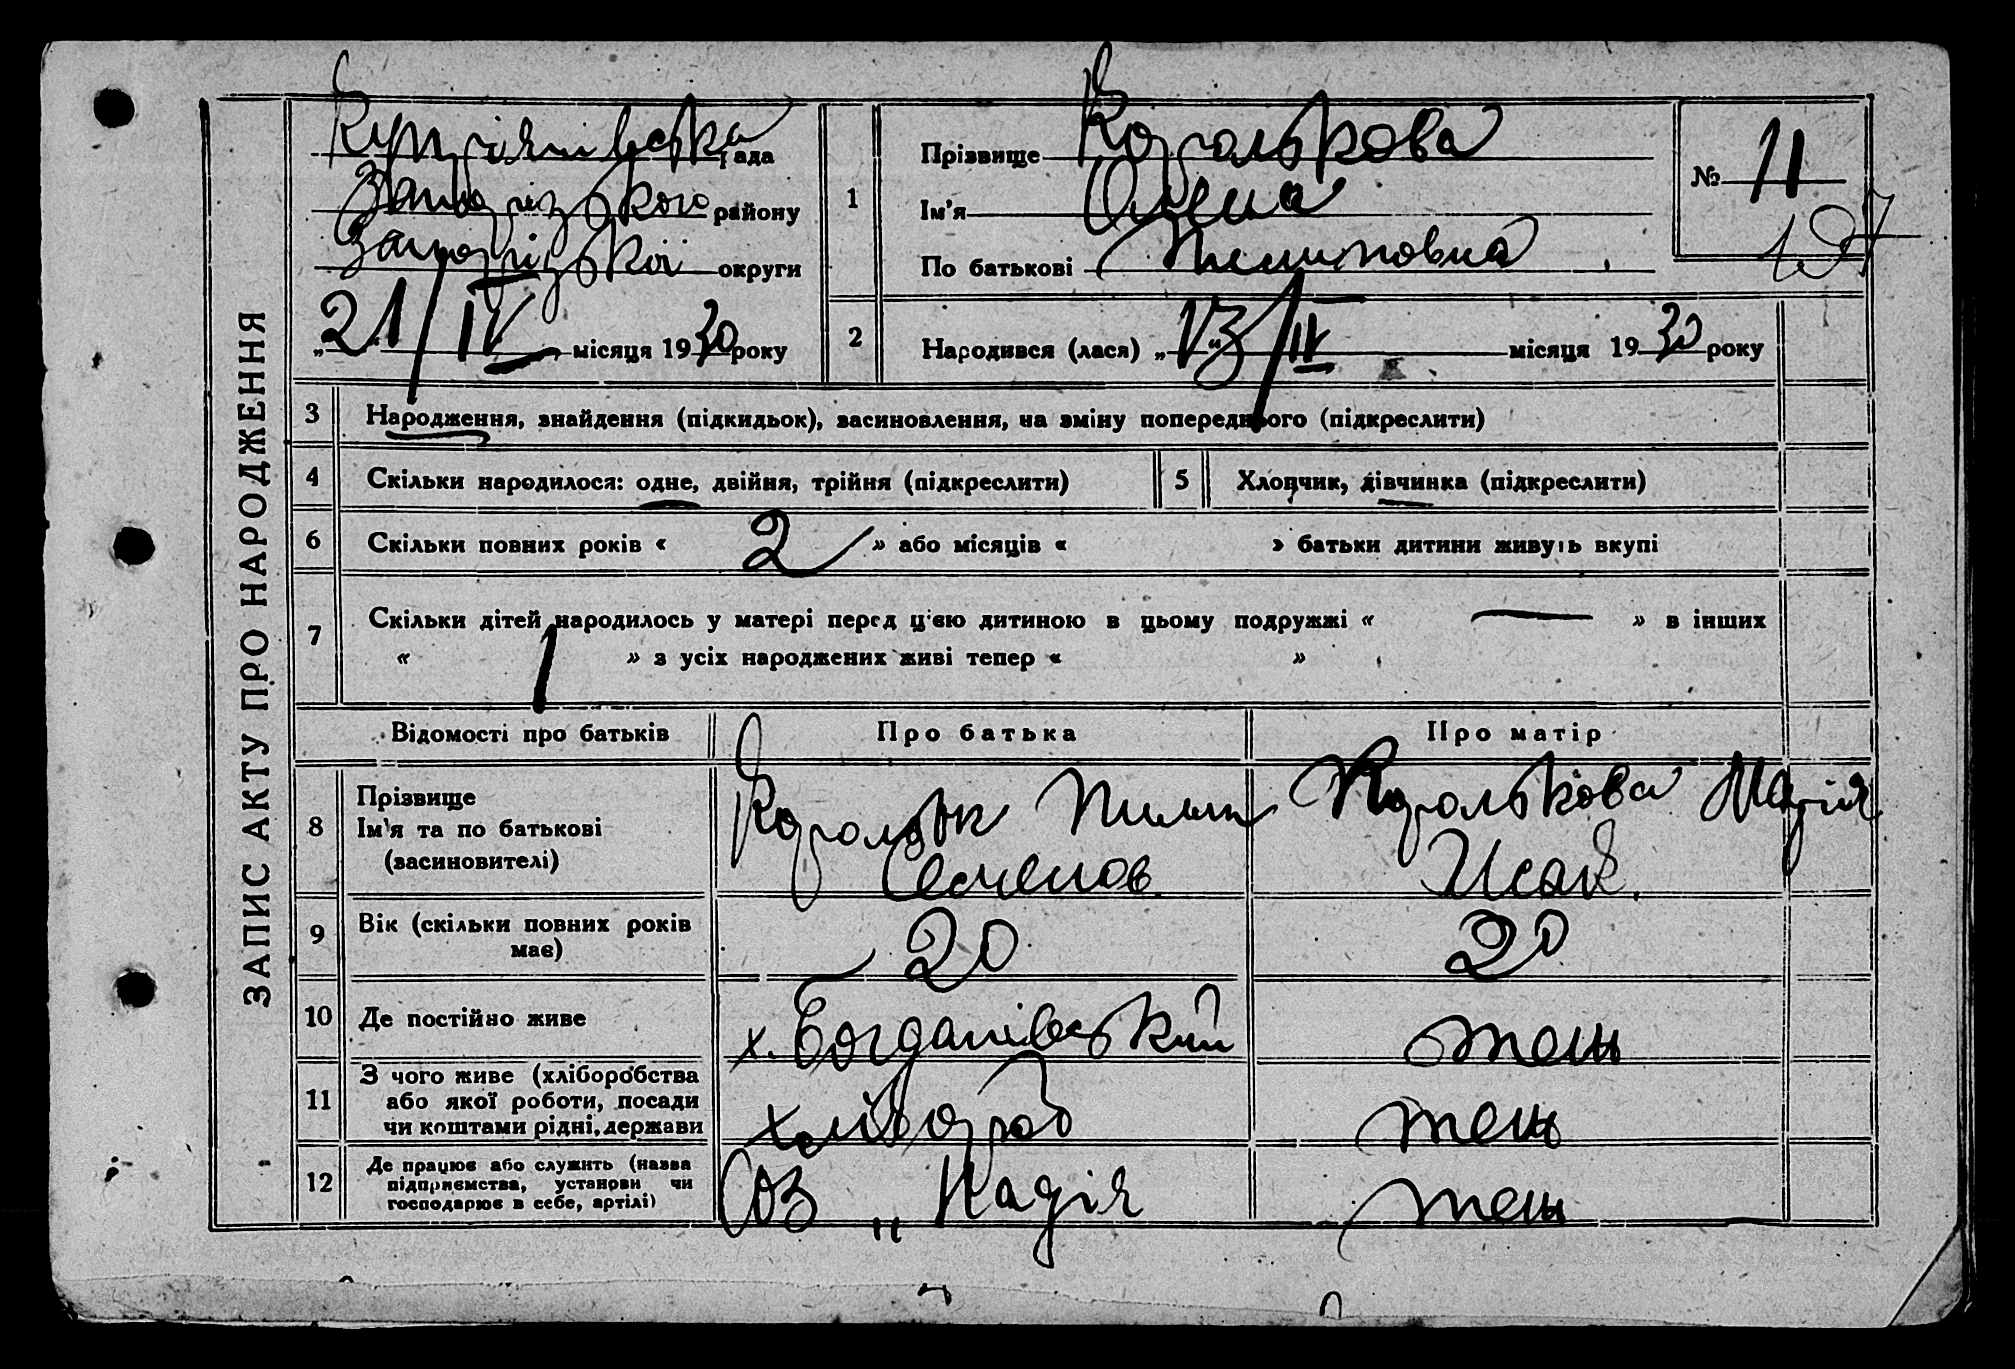 ЗАПИС АКТУ ПРО НАРОДЖЕННЯ
Купріянівська рада
Запорізького району
Запорізької округи
„21/IV місяця 1930 року
1
Прізвище Королькова
Ім'я Олена
По батькові Пилиповна
№ 11
197
2
Народився (лася) „13/IV місяця 1930 року
3 Народження, знайдення (підкидьок), васиновлення, на зміну попереднього (підкреслити)
4 Скільки народилося: одне, двійня, трійня (підкреслити) 5 Хлопчик, дівчинка (підкреслити)
6 Скільки повних років « 2 » або місяців « » батьки дитини живуть вкупі
7 Скільки дітей народилось у матері перед цією дитиною в цьому подружжі « — » в інших
« 1 » з усіх народжених живі тепер « »
Відомості про батьків Про батька Про матір
8 Прізвище
Ім'я та по батькові
(засиновителі)
Корольк Пилип
Семенов
Королькова Марія
Исак.
9 Вік (скільки повних років
має)
20 20
10 Де постійно живе х. Богданівський тещ
11 З чого живе (хліборобства
або якої роботи, посади
чи коштами рідні, держави
хлібороб тещ
12 Де працює або служить (назва
підприємства, установи чи
господарює в себе, артілі)
Соз „Надія тещ